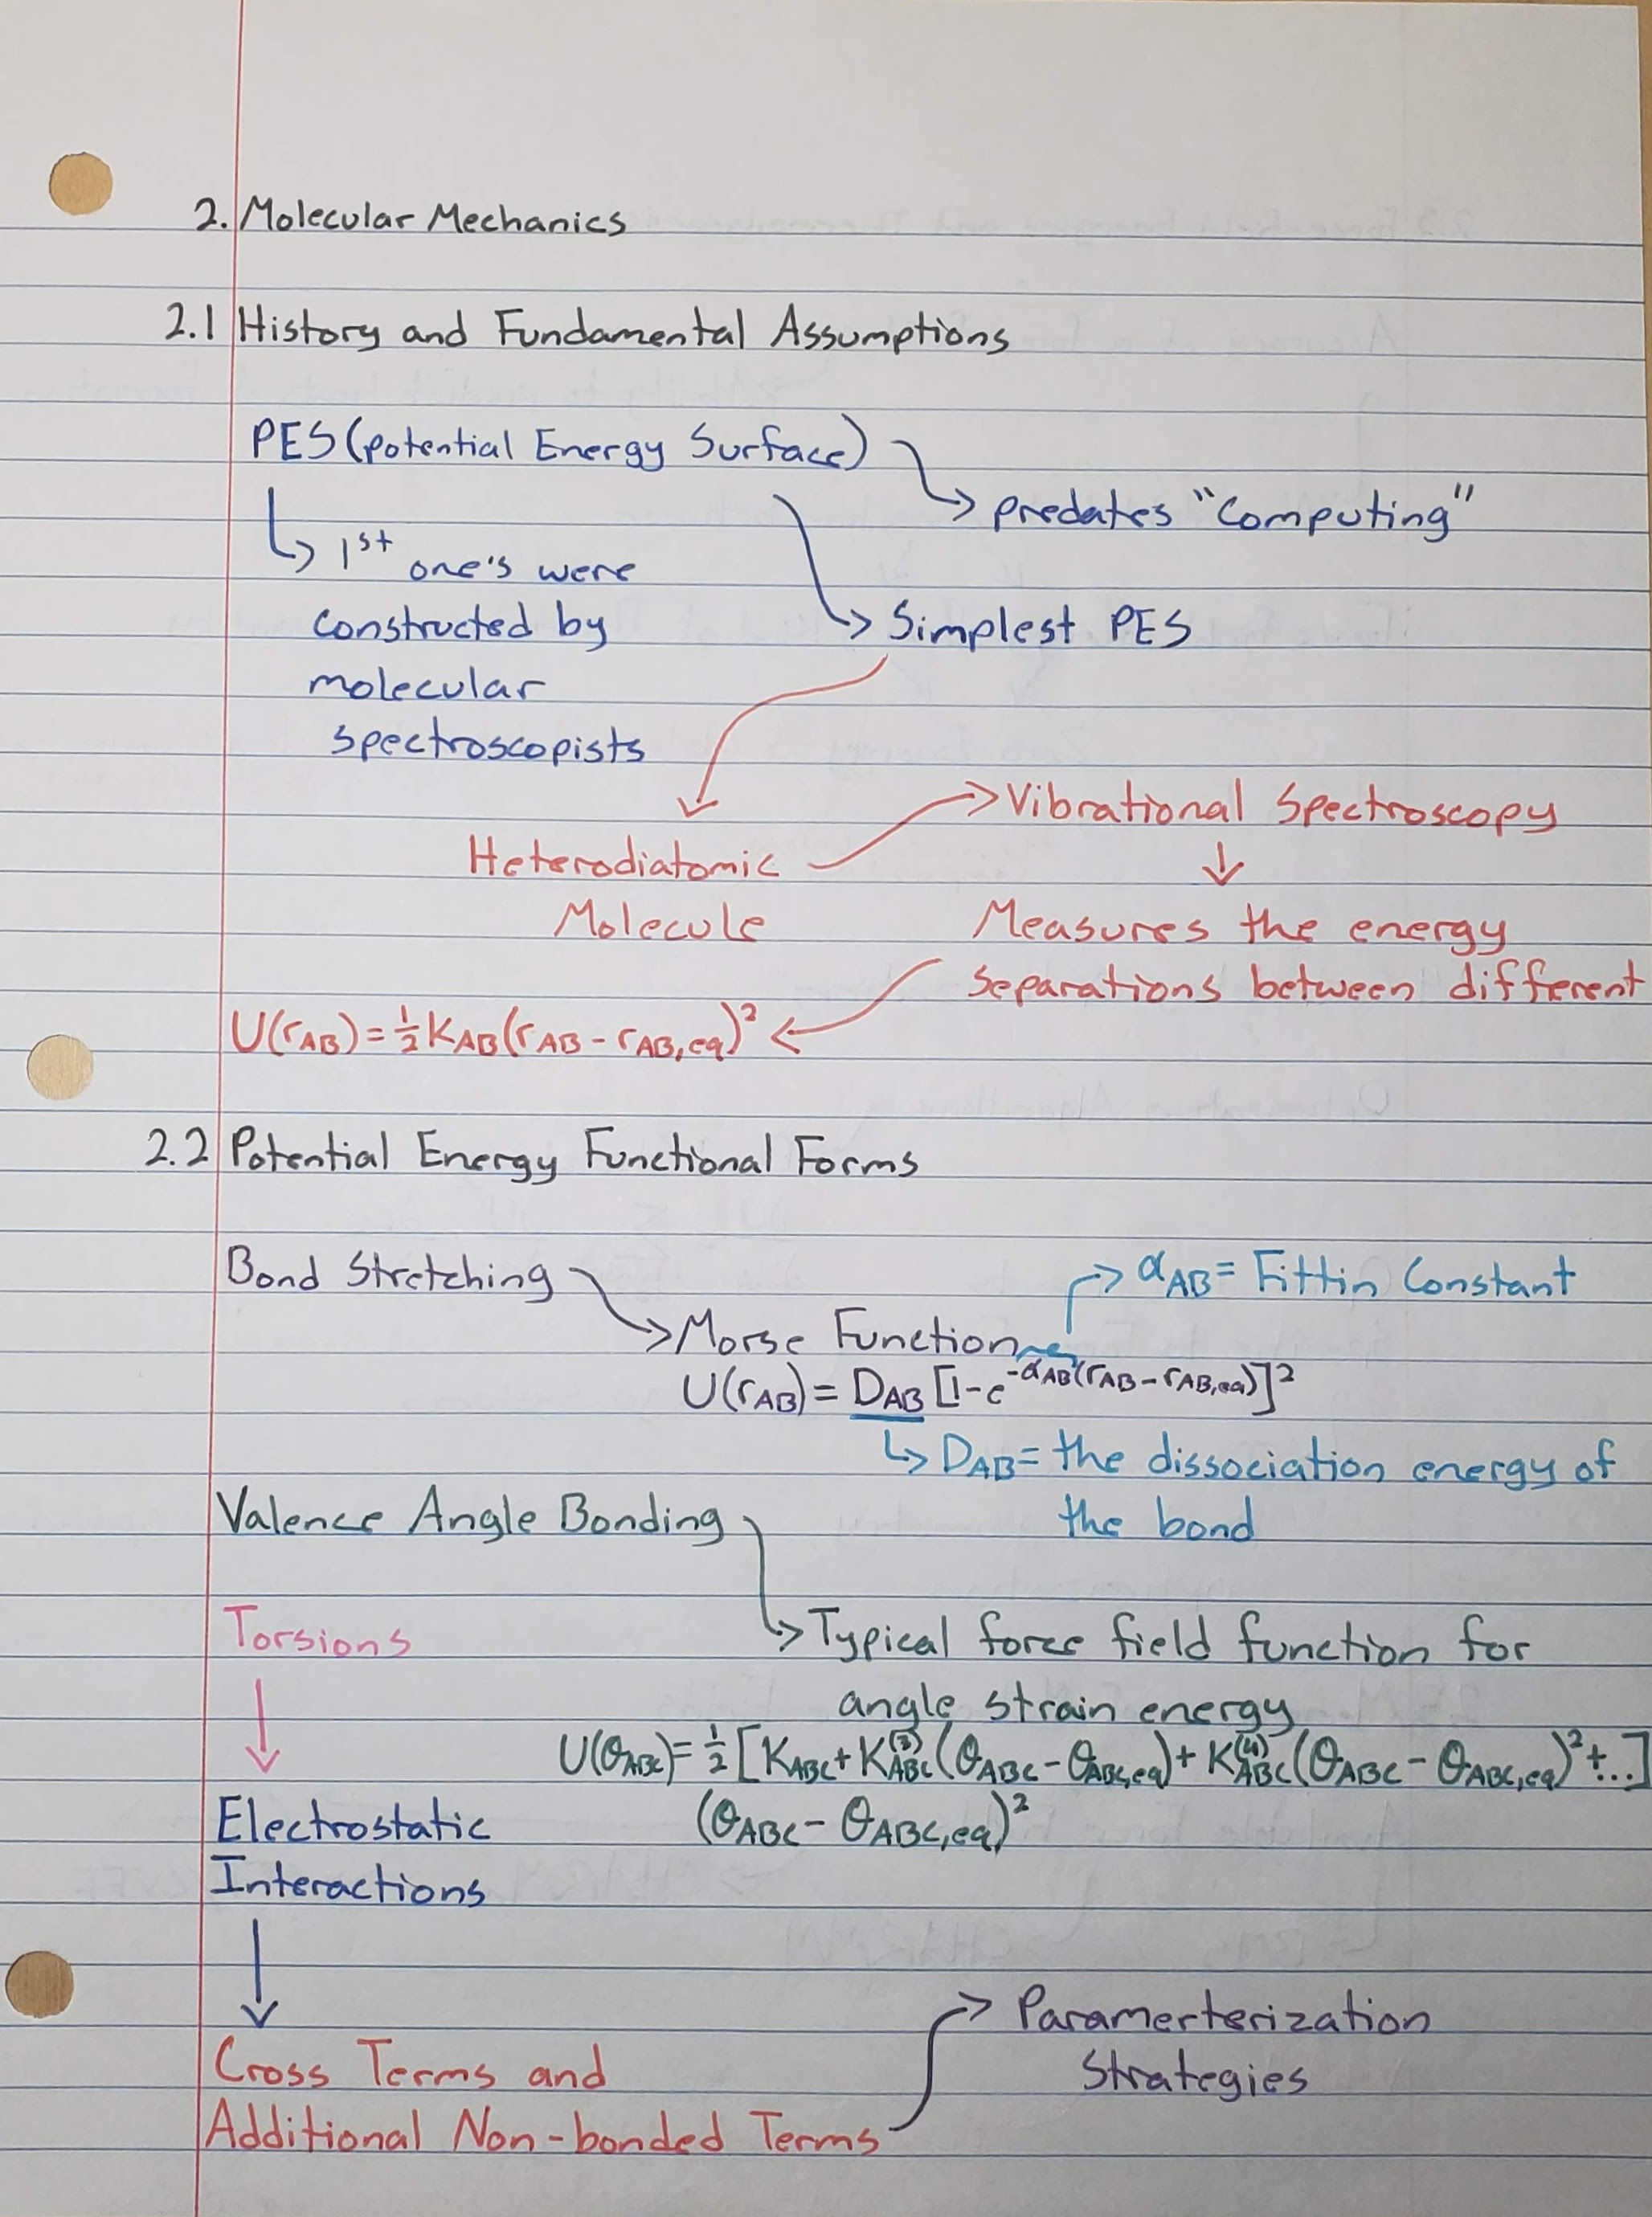 2. Molecular Mechanics
2.1 History and Fundamental Assumptions
PES (potential Energy Surface)
predates "Computing"
1st one's were
constructed by
molecular
spectroscopists
Simplest PES
Heterodiatomic
Molecule
Vibrational Spectroscopy
Measures the energy
separations between different
U(rAB) = 1/2 KAB(rAB - rAB,eq)²
2.2 Potential Energy Functional Forms
Bond Stretching
αAB = Fittin Constant
Morse Function
U(rAB) = DAB [1-e^-αAB(rAB-rAB,eq)]²
DAB = the dissociation energy of
the bond
Valence Angle Bonding
Typical force field function for
angle strain energy
U(θABC) = 1/2 [KABC + KABC^(3) (θABC - θABC,eq) + KABC^(4) (θABC - θABC,eq)² + ...]
(θABC - θABC,eq)²
Torsions
Electrostatic
Interactions
Cross Terms and
Additional Non-bonded Terms
Paramerterization
Strategies